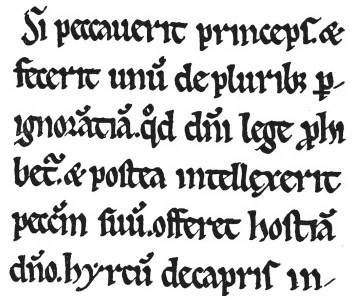 Si peccauerit princepſ. &
fecerit unū de pluribꝫ ꝑ-
ignorātiā. qͦd dn̄i lege ꝓhi
bet̄. & poſtea intellexerit
peccm̄ ſuū. offeret hoſtiā
dn̄o. hyrcū de capriſ in-